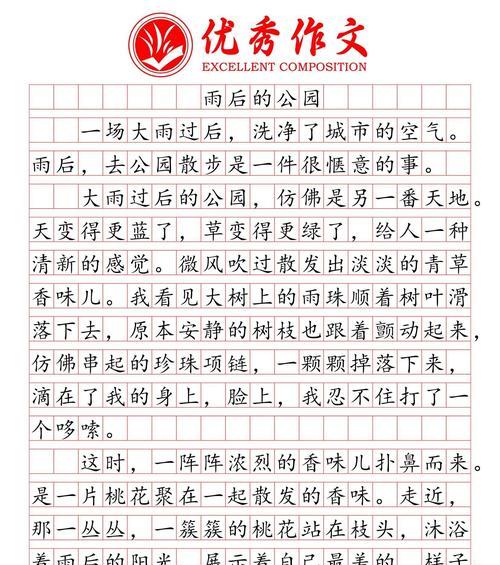 优秀作文
EXCELLENT COMPOSITION
雨后的公园
一场大雨过后，洗净了城市的空气。
雨后，去公园散步是一件很惬意的事。
大雨过后的公园，仿佛是另一番天地。
天变得更蓝了，草变得更绿了，给人一种
清新的感觉。微风吹过散发出淡淡的青草
香味儿。我看见大树上的雨珠顺着树叶滑
落下去，原本安静的树枝也跟着颤动起来，
仿佛串起的珍珠项链，一颗颗掉落下来，
滴在了我的身上，脸上，我忍不住打了一
个哆嗦。
这时，一阵阵浓烈的香味儿扑鼻而来。
是一片桃花聚在一起散发的香味。走近，
那一丛丛，一簇簇的桃花站在枝头，沐浴
着雨后的阳光，展示着自己最美的一样子